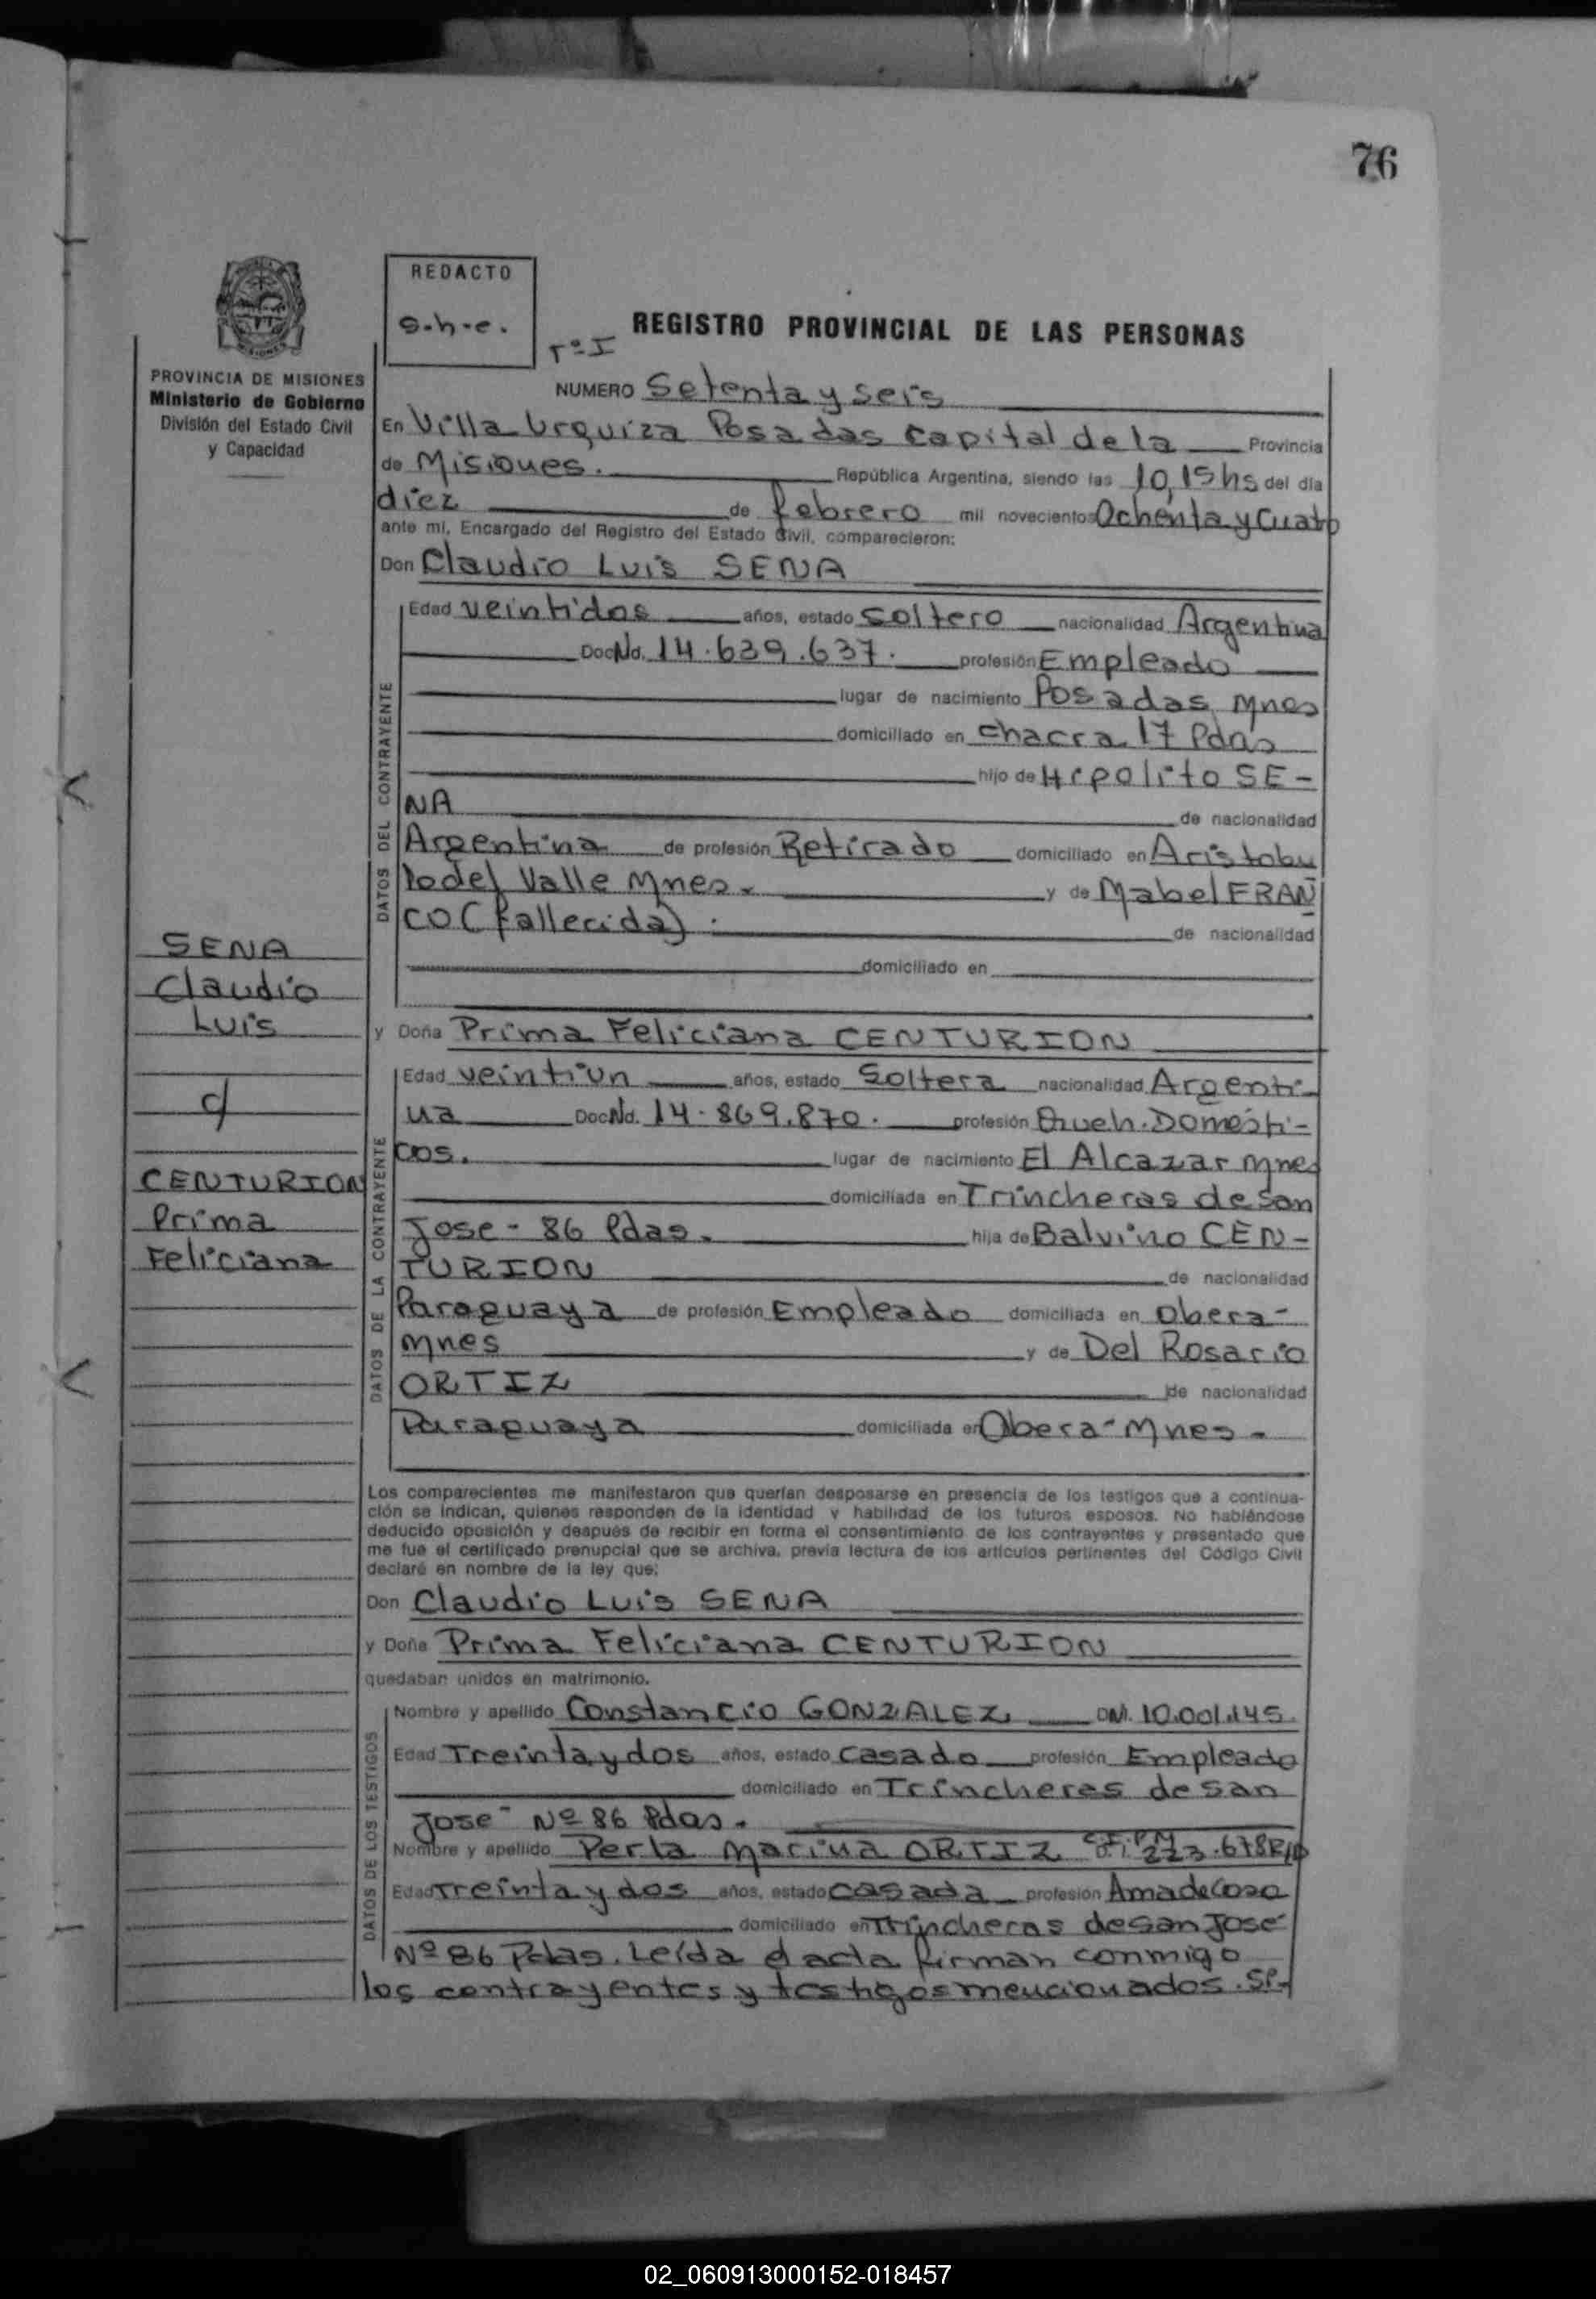 76
REDACTO
s.h.e.
Tº I
REGISTRO PROVINCIAL DE LAS PERSONAS
PROVINCIA DE MISIONES
Ministerio de Gobierno
División del Estado Civil
y Capacidad
NUMERO Setenta y seis
En Villa Urquiza Posadas Capital de la Provincia
de Misiones. República Argentina, siendo las 10,15 hs del día
diez de febrero mil novecientos Ochenta y Cuatro
ante mí, Encargado del Registro del Estado Civil, comparecieron:
Don Claudio Luis SENA
DATOS DEL CONTRAYENTE
Edad veintidos años, estado Soltero nacionalidad Argentina
Doc No. 14.639.637. profesión Empleado
lugar de nacimiento Posadas Mnes
domiciliado en chacra 17 Pdas
hijo de Hipolito SE-
NA de nacionalidad
Argentina de profesión Retirado domiciliado en Aristobu
lo del Valle Mnes. y de Mabel FRAN
CO (fallecida). de nacionalidad
domiciliado en
SENA
Claudio
Luis
c/
CENTURION
Prima
Feliciana
y Doña Prima Feliciana CENTURION
DATOS DE LA CONTRAYENTE
Edad veintiun años, estado Soltera nacionalidad Argenti-
na Doc No. 14.869.870. profesión Queh. Domésti-
cos. lugar de nacimiento El Alcazar Mnes
domiciliada en Trincheras de San
Jose - 86 Pdas. hija de Balvino CEN-
TURION de nacionalidad
Paraguaya de profesión Empleado domiciliada en Obera-
Mnes y de Del Rosario
ORTIZ de nacionalidad
Paraguaya domiciliada en Obera-Mnes.
Los comparecientes me manifestaron que querían desposarse en presencia de los testigos que a continua-
ción se indican, quienes responden de la identidad y habilidad de los futuros esposos. No habiéndose
deducido oposición y después de recibir en forma el consentimiento de los contrayentes y presentado que
me fue el certificado prenupcial que se archiva, previa lectura de los artículos pertinentes del Código Civil
declaré en nombre de la ley que:
Don Claudio Luis SENA
y Doña Prima Feliciana CENTURION
quedaban unidos en matrimonio.
DATOS DE LOS TESTIGOS
Nombre y apellido Constancio GONZALEZ DNI. 10.001.145.
Edad Treinta y dos años, estado Casado profesión Empleado
domiciliado en Trincheras de San
Jose - Nº 86 Pdas.
Nombre y apellido Perla Marina ORTIZ 223.678
Edad Treinta y dos años, estado casada profesión Ama de Casa
domiciliado en Trincheras de San José
Nº 86 Pdas. Leída el acta firman conmigo
los contrayentes y testigos mencionados.
02_060913000152-018457